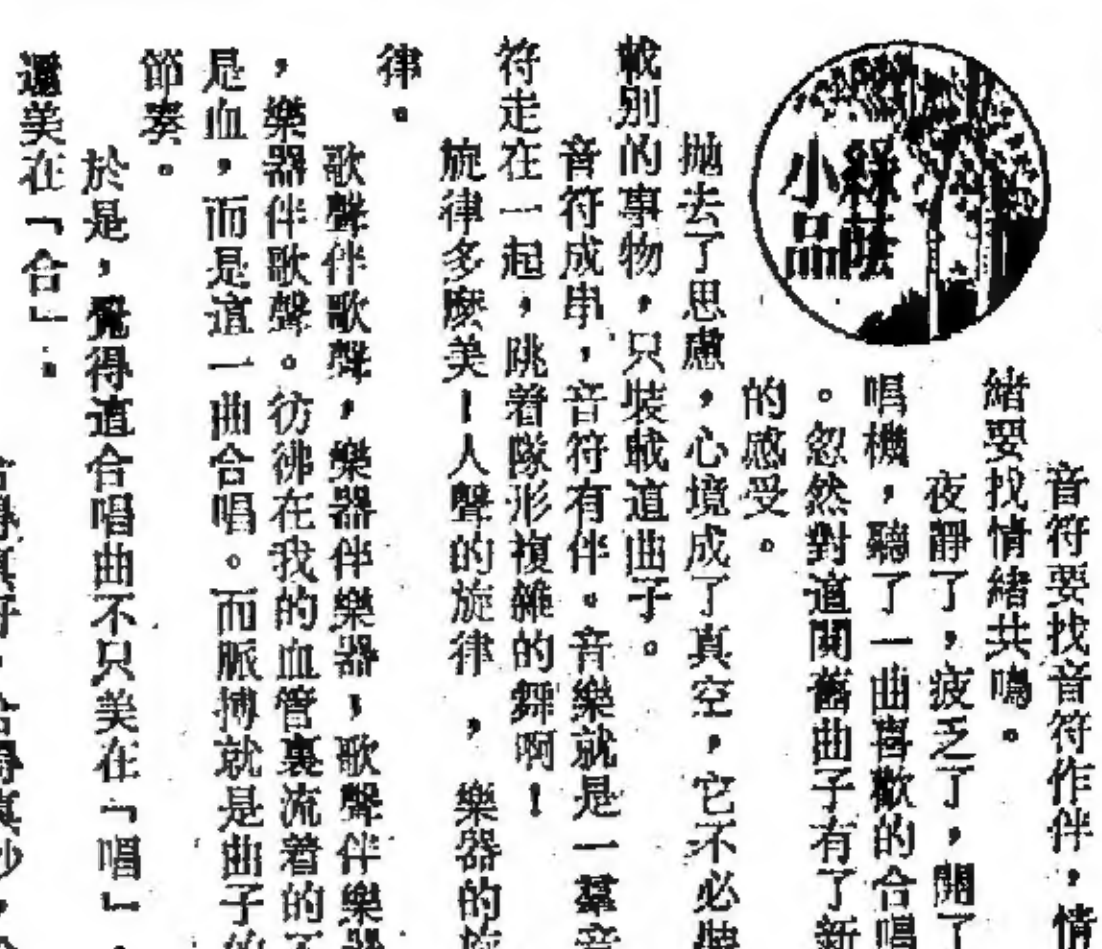 綠蔭
小品
音符要找音符作伴，情
緒要找情緒共鳴。
夜靜了，疲乏了，開了
唱機，聽了一曲喜歡的合唱
。忽然對這闋舊曲子有了新
的感受。
拋去了思慮，心境成了真空，它不必裝
載別的事物，只裝載這曲子。
音符成串，音符有伴。音樂就是一羣音
符走在一起，跳着隊形複雜的舞啊！
旋律多麼美！人聲的旋律，樂器的旋
律。
歌聲伴歌聲，樂器伴樂器，歌聲伴樂器
，樂器伴歌聲。彷彿在我的血管裏流着的不
是血，而是這一曲合唱。而脈搏就是曲子的
節奏。
於是，覺得這合唱曲不只美在「唱」，
還美在「合」：